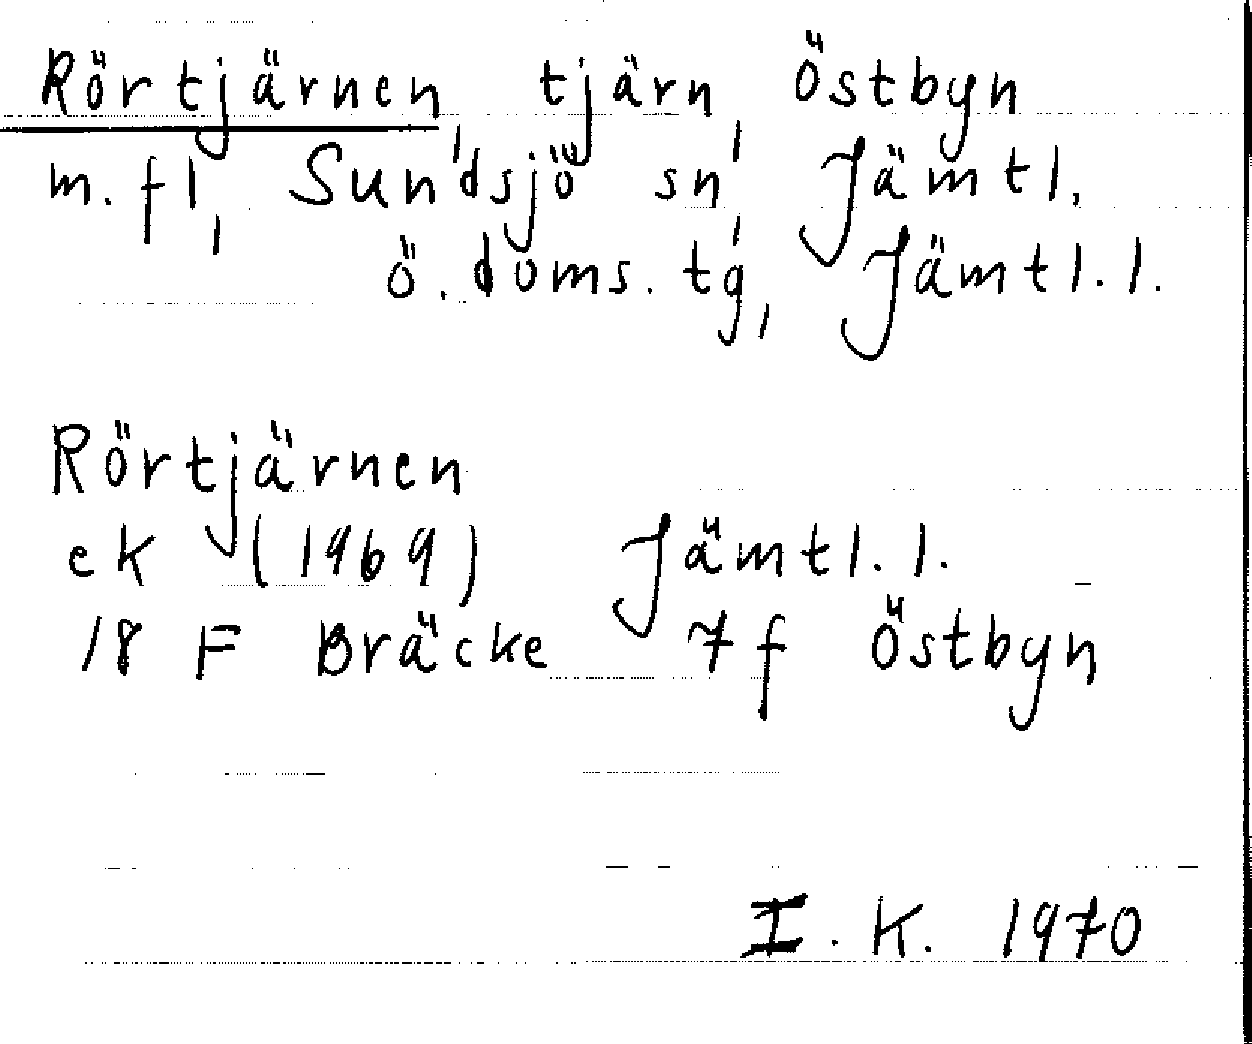 Rörtjärnen, tjärn, Östbyn
m.fl, Sundsjö sn, Jämtl,
ö.doms.tg, Jämtl.l.
Rörtjärnen
ek (1969) Jämtl.l.
18 F Bräcke 7 f Östbyn
I.K. 1970